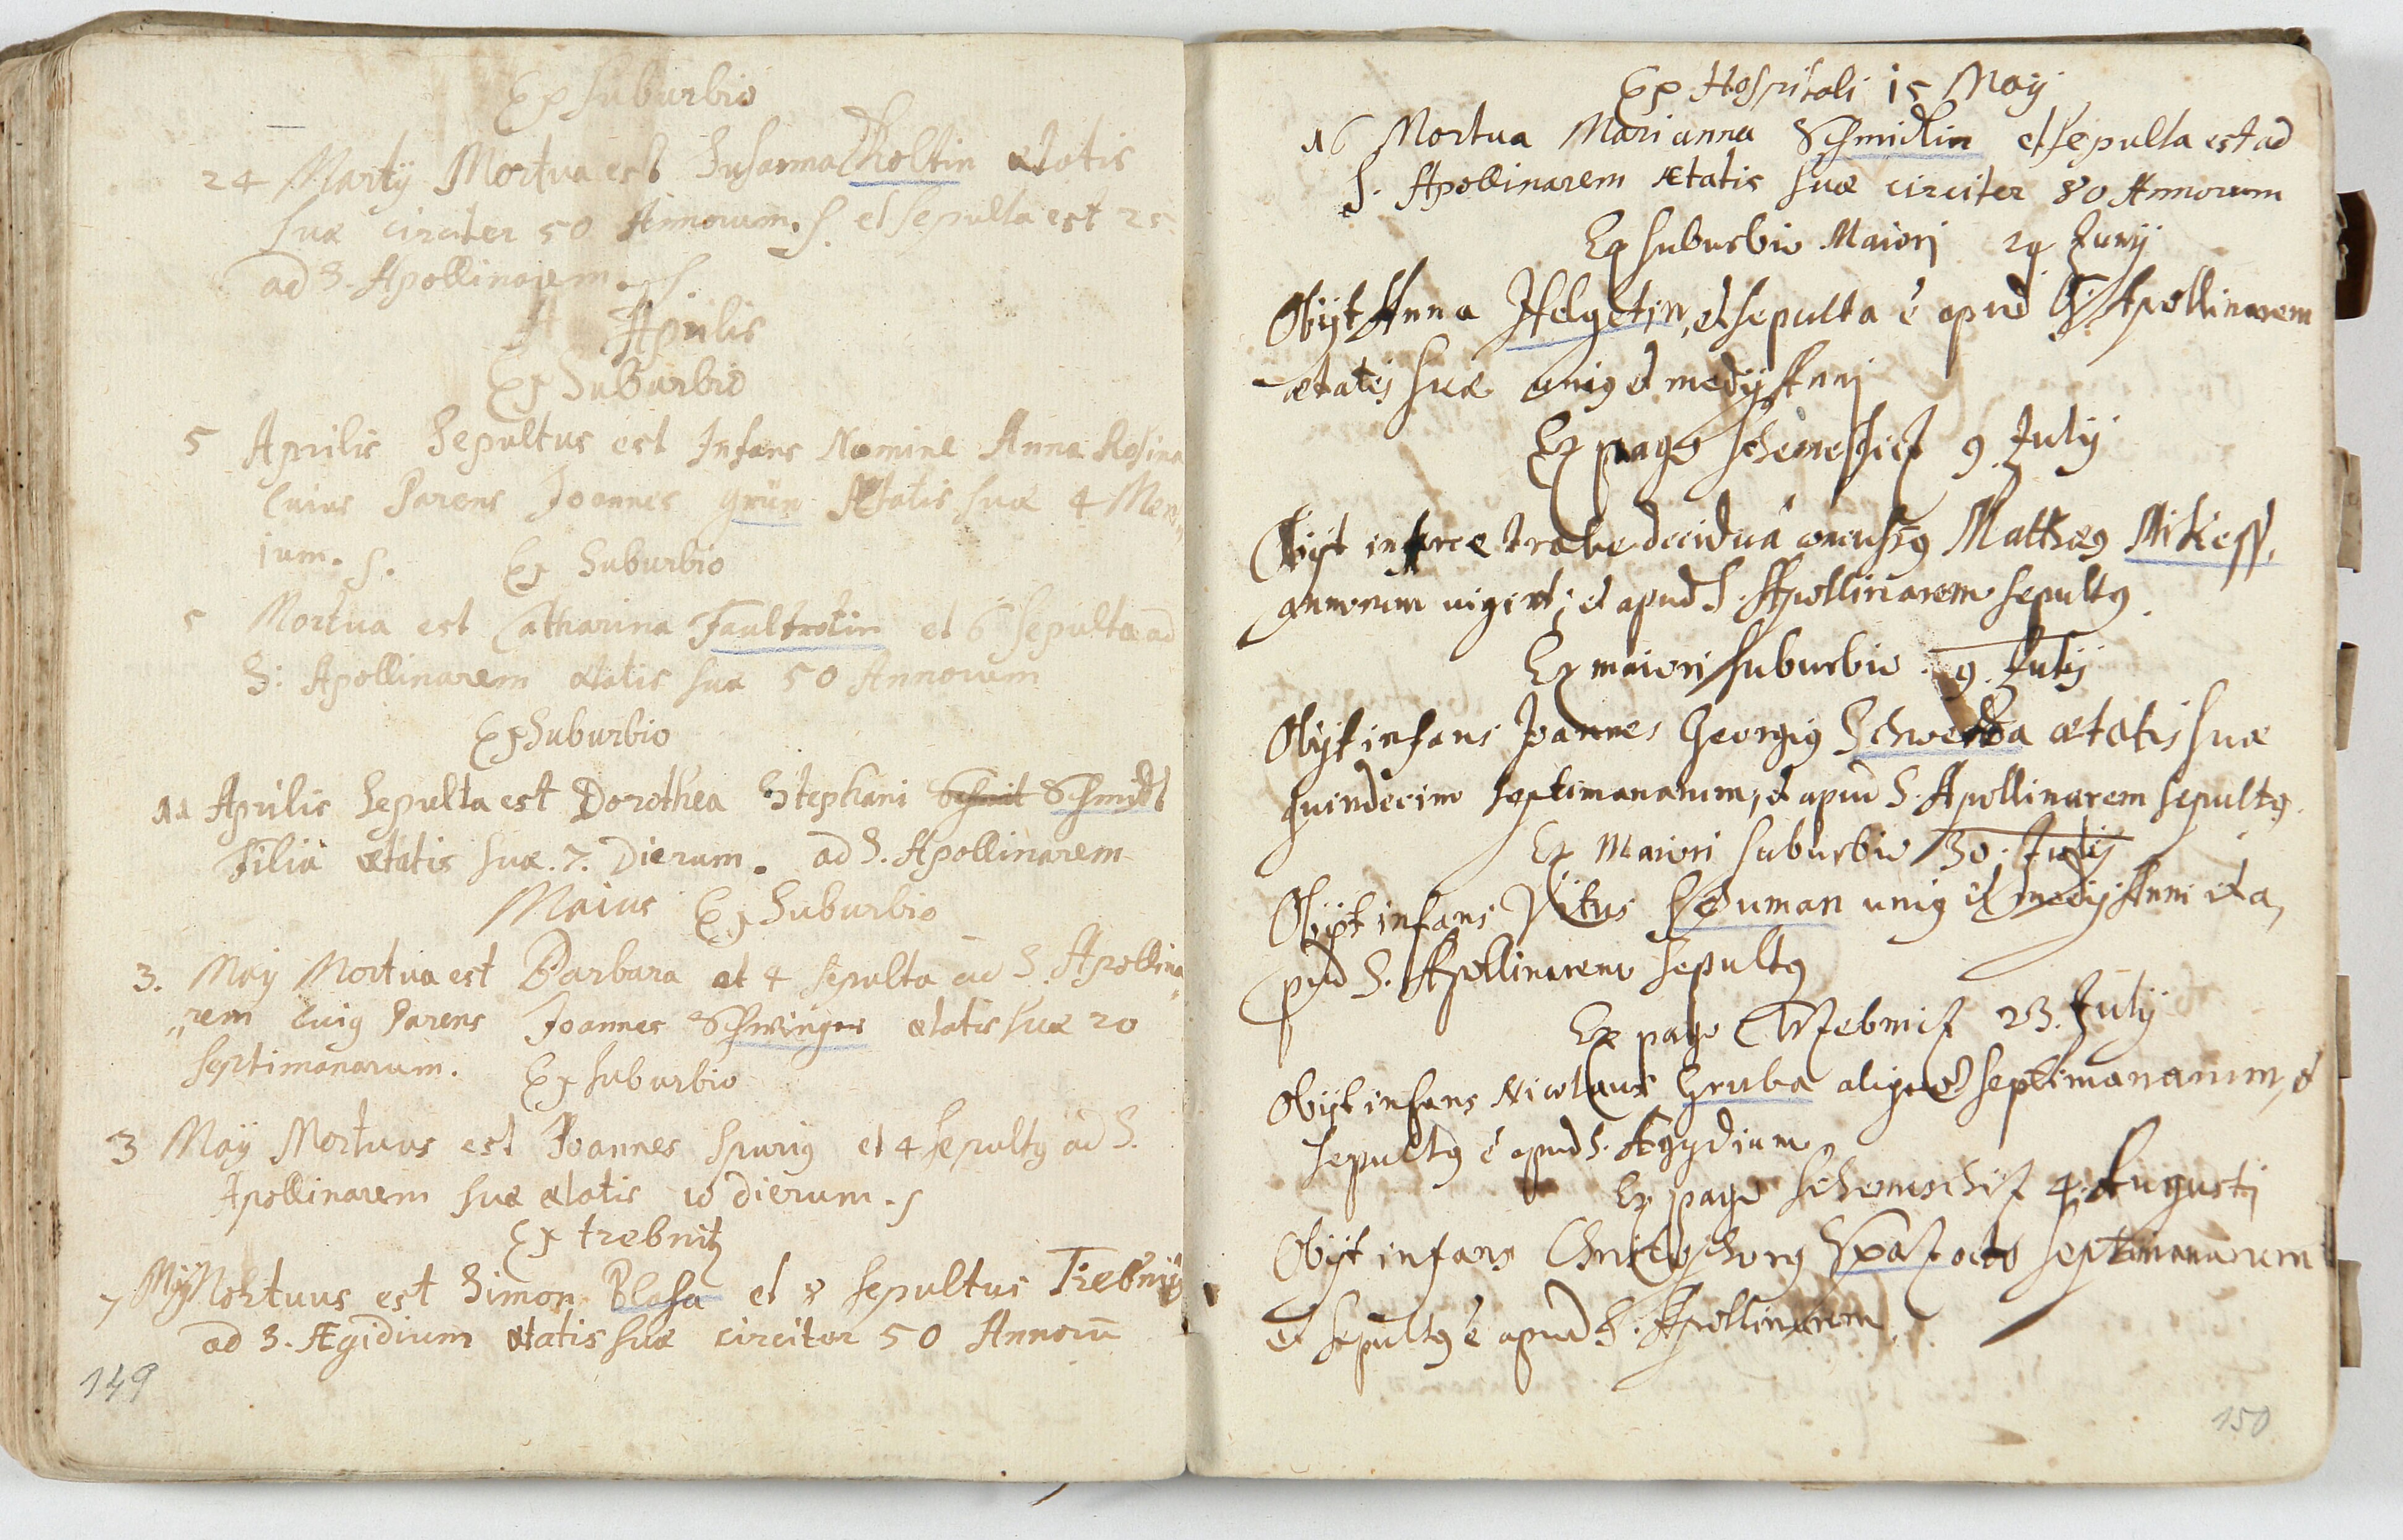 Ex Suburbio
24 Martij Mortua est Susanna Tholtin ætatis
suæ circiter 50 Annorum. S. et sepulta est 25
ad S. Apollinarem. S.
Aprilis
Ex Suburbio
5 Aprilis Sepultus est Infans Nomine Anna Rosina
Cuius Parens Joannes Grün Ætatis suæ 4 Men„
sium. S. Ex Suburbio
5 Mortua est Catharina Faultrotin et 6 Sepulta ad
S: Apollinarem ætatis suæ 50 Annorum
Ex Suburbio
11 Aprilis Sepulta est Dorothea Stephani Schmit Schmidt
Filia ætatis suæ. 7. Dierum. ad S. Apollinarem
Maius Ex Suburbio
3. Maij Mortua est Barbara et 4 sepulta ad S. Apollina„
„rem Cuig Parens Joannes Schwinger ætatis suæ 20
septimanarum. Ex suburbio
3 Maij Mortuus est Joannes Spurig et 4 sepultg ad S.
Apollinarem suæ ætatis 10 dierum. S
Ex trebnitz
7 Maij Mortuus est Simon Blasa et 8 sepultus Trebnitz
ad S. Ægidium ætatis suæ circiter 50 Annorū
149
Ex Hospitali 15 Maij
16 Mortua Marianna Schmidlin et sepulta est ad
S. Apollinarem Ætatis suæ circiter 80 Annorum
Ex suburbio Maiori 29 Junij
Obijt Anna Helgetin, et sepulta ē apud S. Apollinarem
ætatis suæ unig et medij Anni
Ex pago Schemeschitz 9. Julij
Obijt in arce trabe decidua Matthæg Mikess,
annorum viginti; et apud S. Apollinarem sepultg.
Ex maiori suburbio 9. Julij
Obijt infans Joannes Georgig ætatis suæ
quindecim septimanarum, et apud S. Apollinarem sepultg.
Ex Maiori suburbio 30. Julij
Obijt infans Vitus unig et medij Anni et a„
pud S. Apollinarem sepultg
Ex pago Trzebnitz 23. Julij
Obijt infans Nicolaus Gruba aliquot septimanarum, et
sepultg ē apud S. Ægydium
Ex pago 4. Augusti
Obijt infans Christophorg octo septimanarum
et sepultg ē apud S. Apollinarem.
150